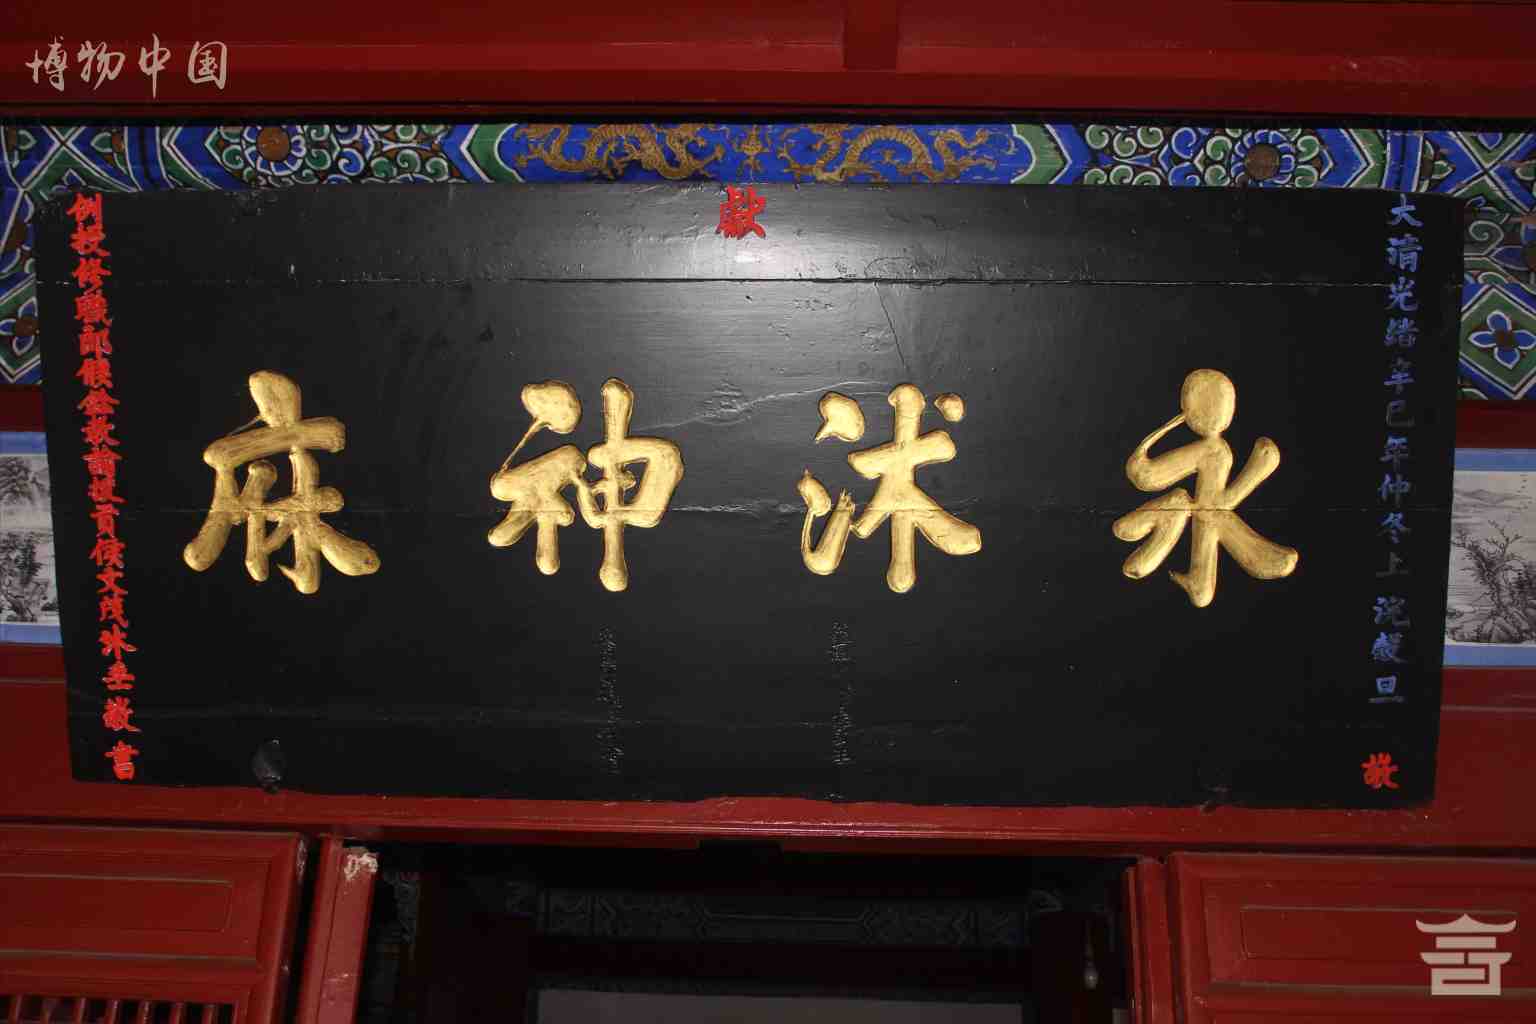 博物中国
獻
大清光緒辛巳年仲冬上浣穀旦
敬
永沭神庥
例授修職郎候銓教諭拔貢侯文茂沐敬書